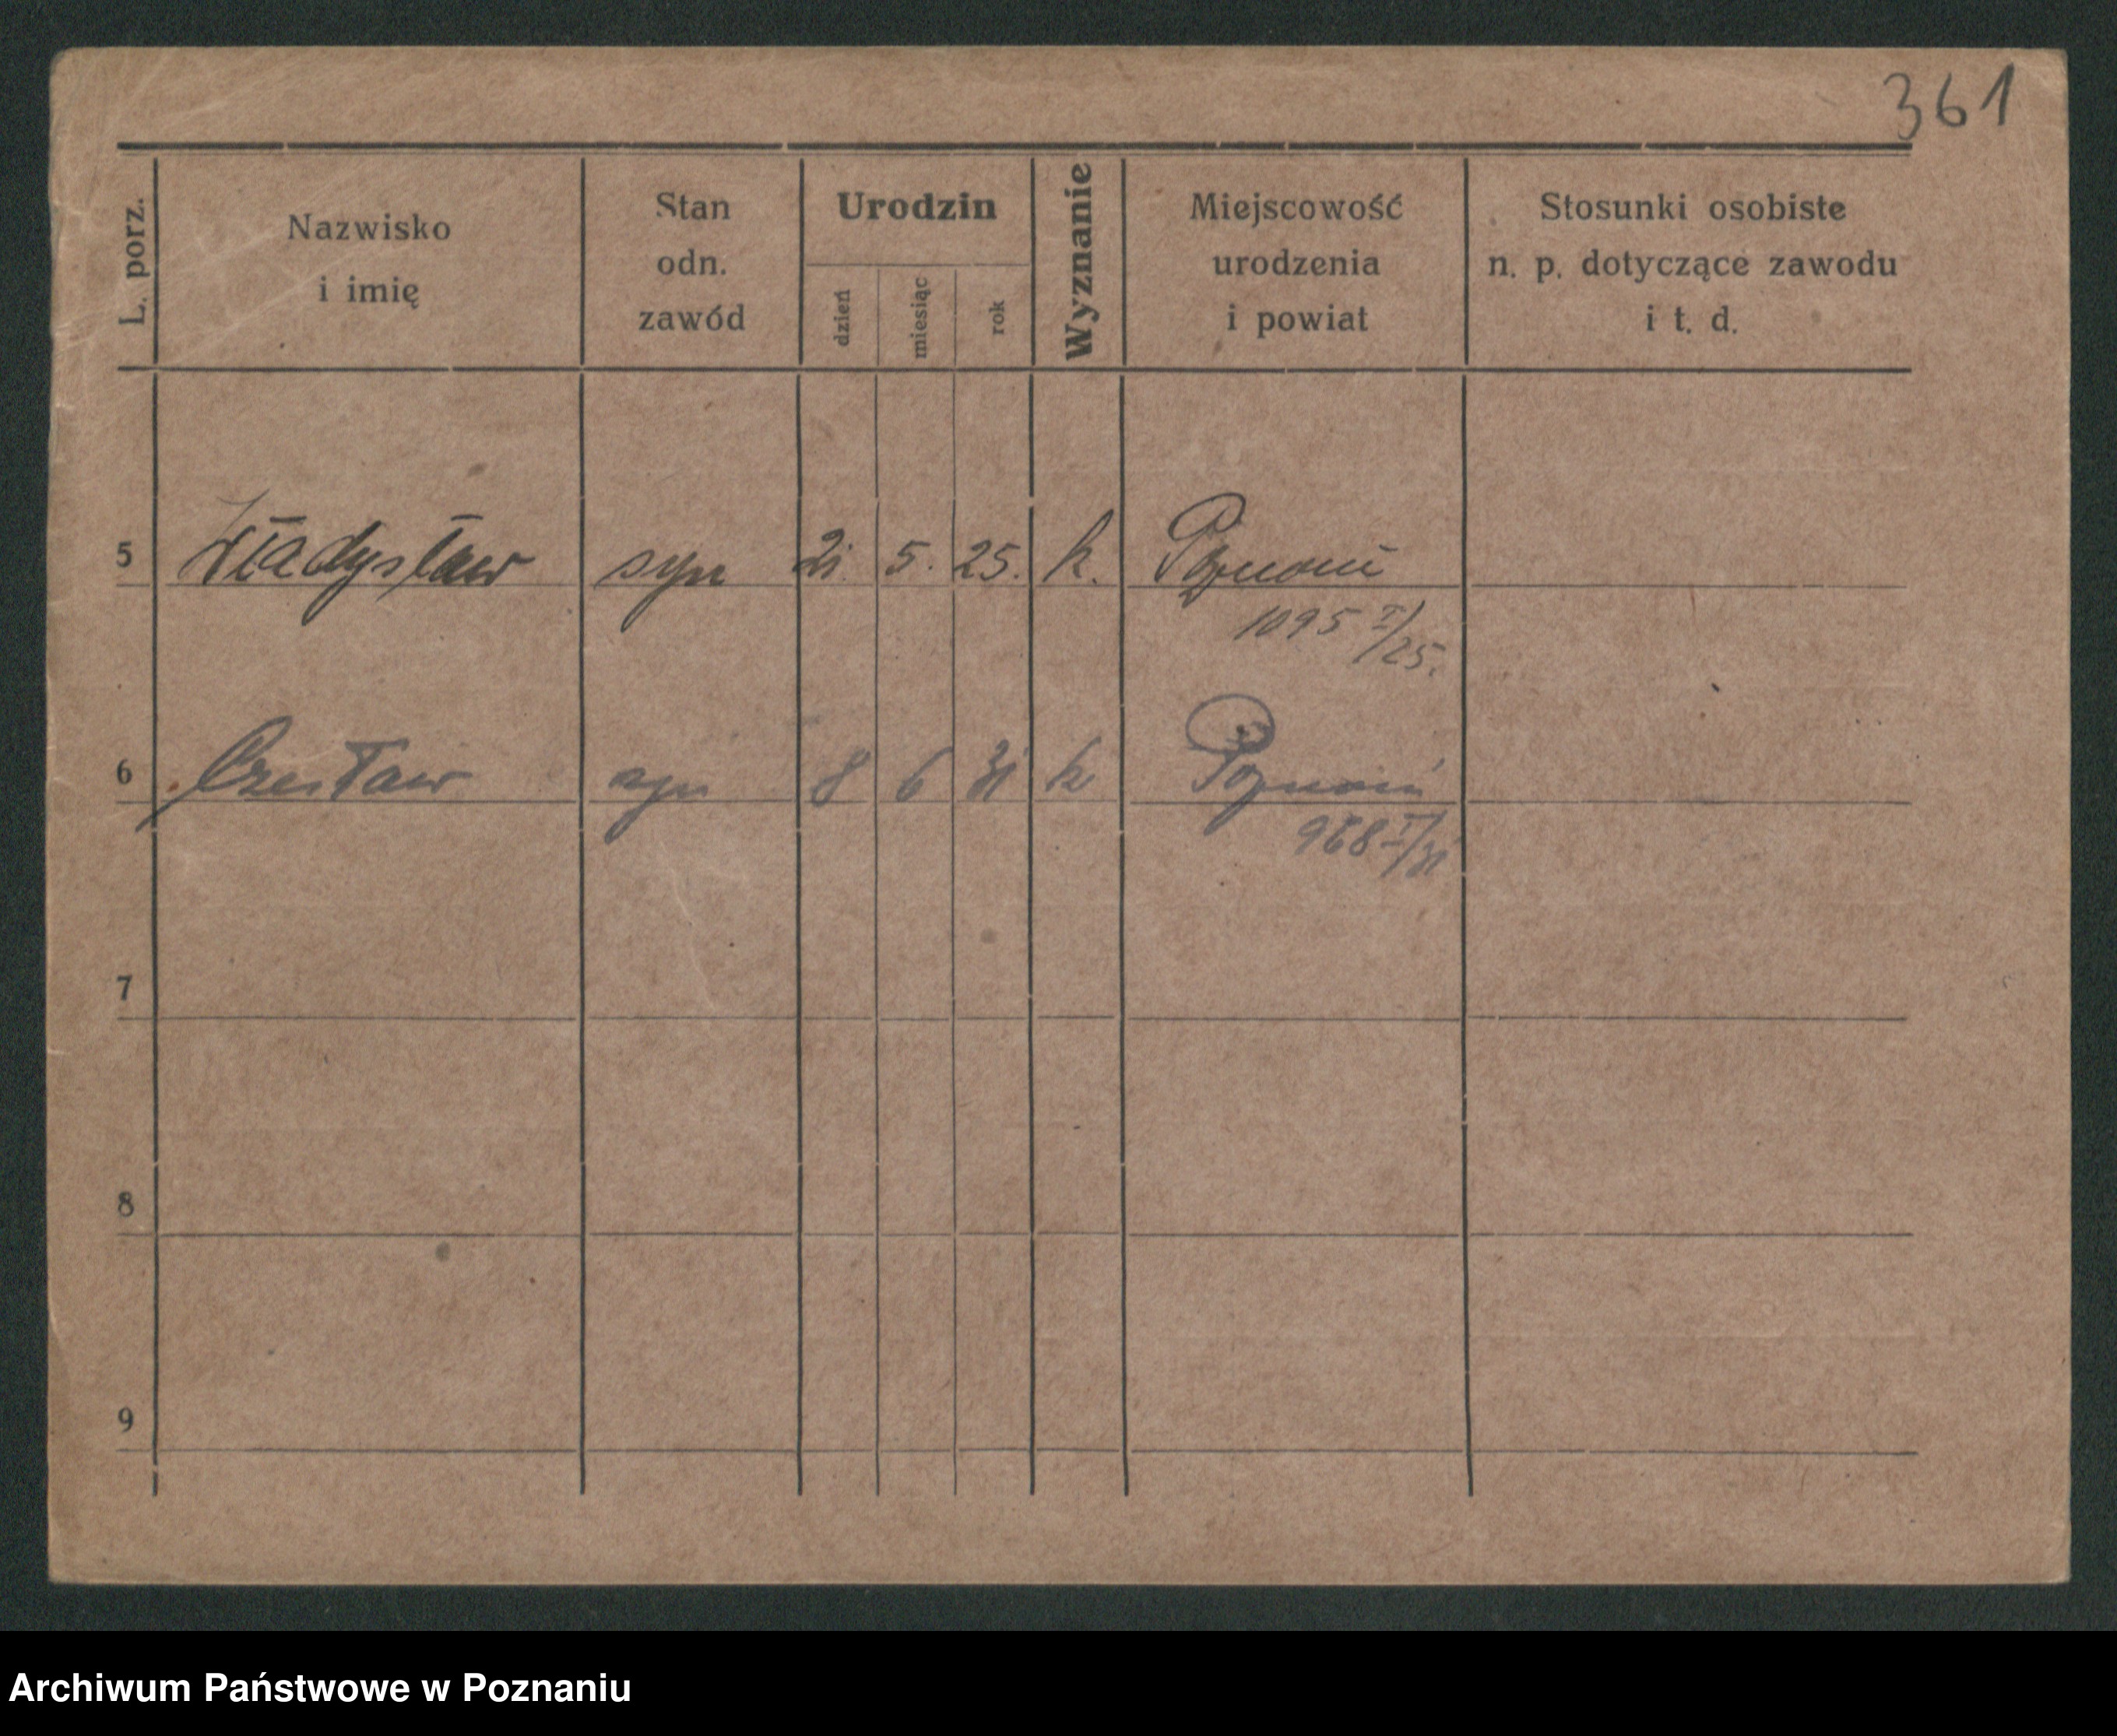 361
L. porz.
Nazwisko
i imię
Stan
odn.
zawód
Urodzin
dzień
miesiąc
rok
Wyznanie
Miejscowość
urodzenia
i powiat
Stosunki osobiste
n. p. dotyczące zawodu
i t. d.
5 Władysław syn 21. 5. 25. k. Poznań
1095 I/25.
6 Czesław syn 8 6 31 k Poznań
968 I/31
7
8
9
Archiwum Państwowe w Poznaniu